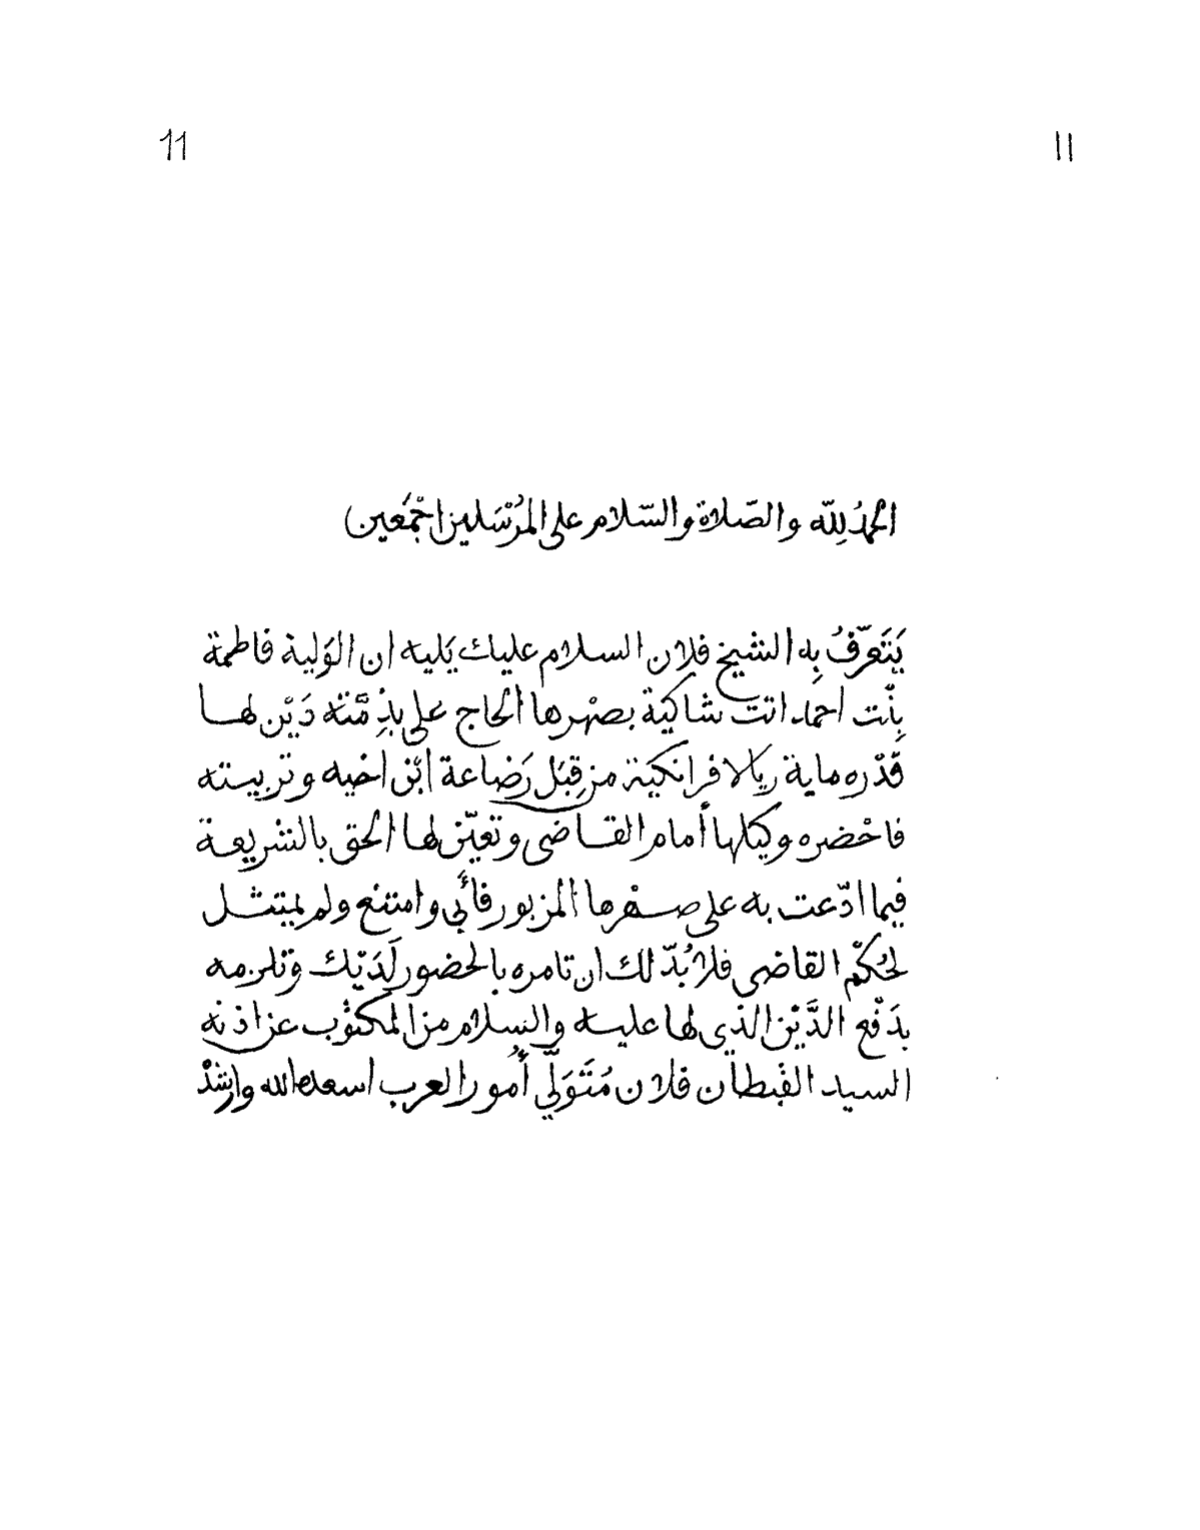 11 11
الحمدُ لِلّه والصّلاة والسّلام على المُرْسَلين اجْمَعين
يَتَعَرّفُ بِه الشيخ فلان السلام عليك يَليه ان الوَلية فاطمة
بِنْت احمد اتت شاكية بصِهْرها الحاج على بذِمَّته دَيْن لها
قَدْره ماية ريالا فرانكية من قِبَل رَضاعة ابْن اخيه وتربيته
فاحْضره وكيلها أمام القاضى وتعيّن لها الحق بالشريعة
فيما ادّعت به على صهْرها المزبور فأبى وامتنع ولم يمتثل
لحُكْم القاضى فلا بُدّ لك ان تامره بالحضور لَدَيْك وتلزمه
بدَفْع الدَّيْن الذي لها عليه والسلام من المكتوب عن اذنه
السيد القبطان فلان مُتَوَلّي أُمور العرب اسعده الله وارشدْ